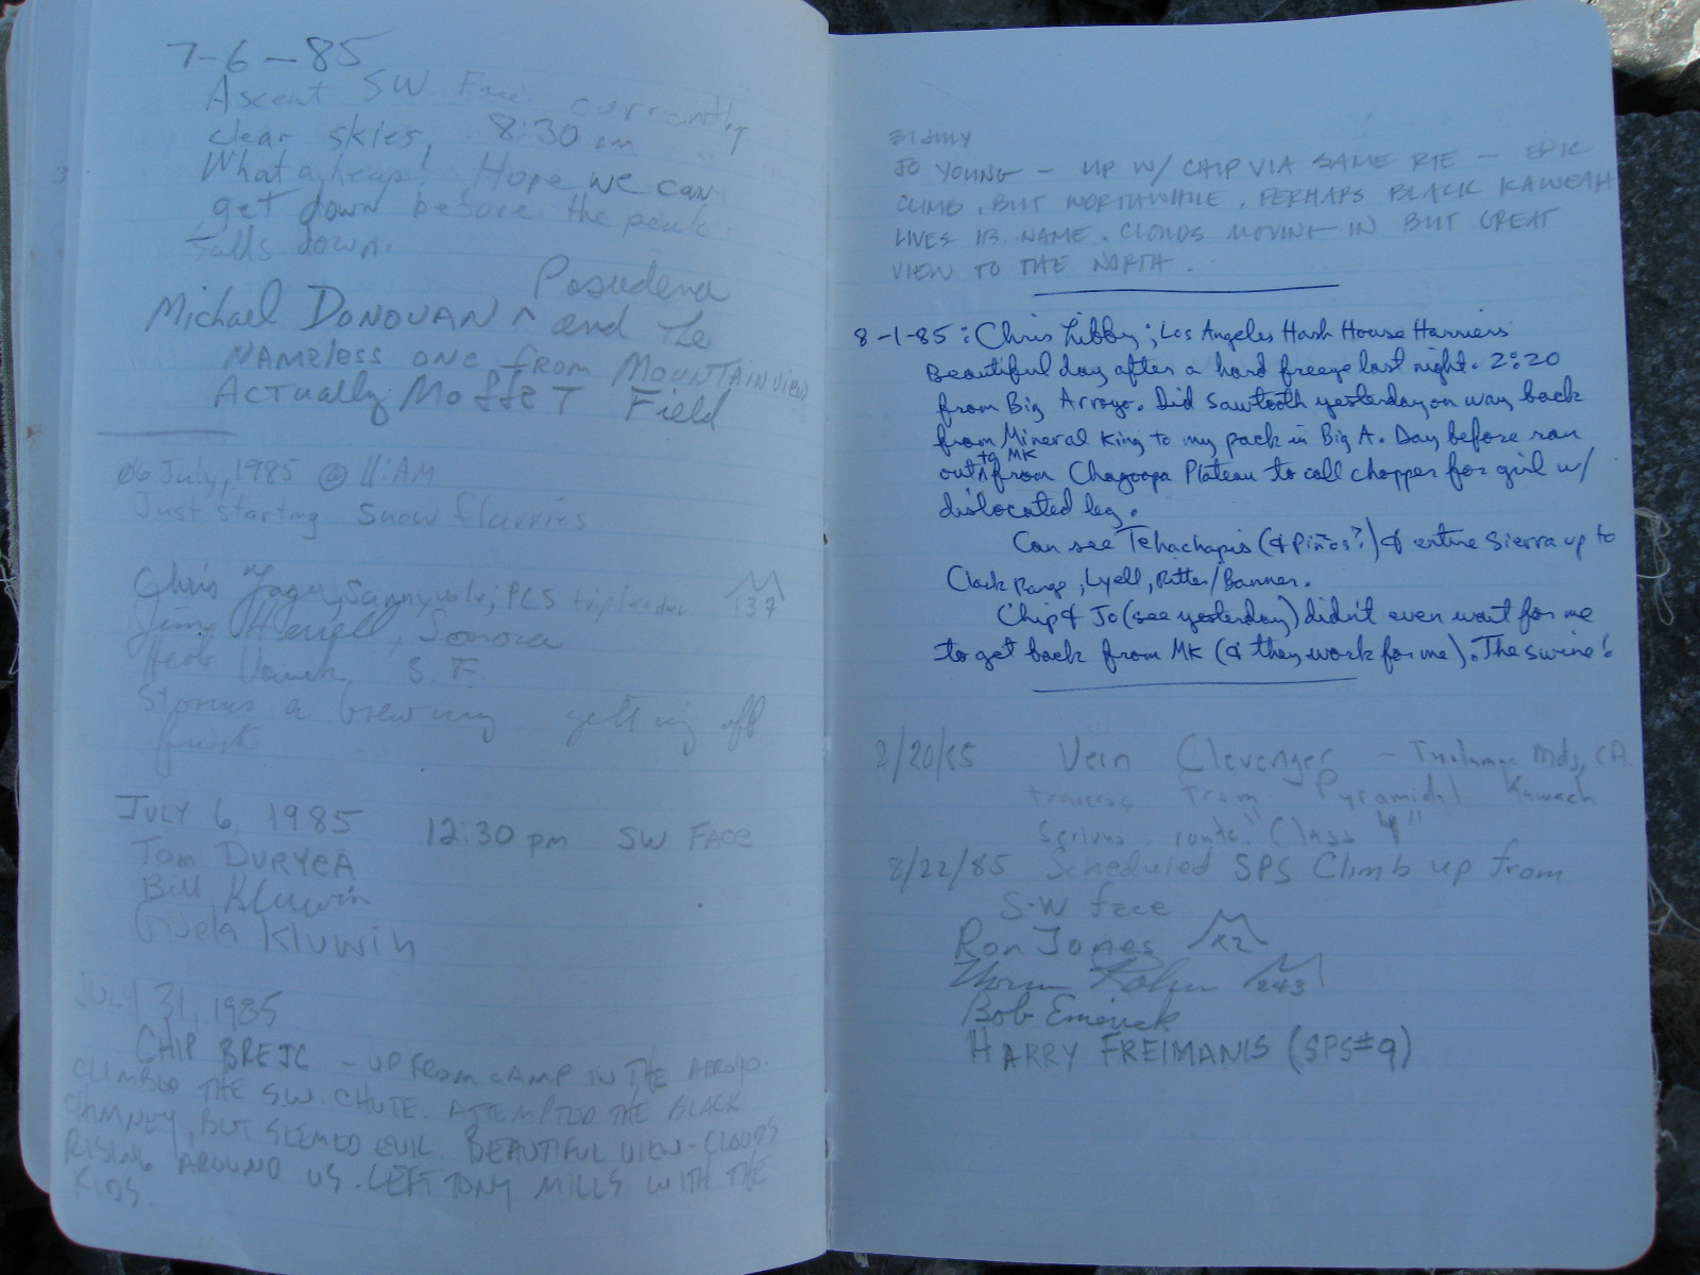 7-6-85
Ascent SW Face currently
clear skies, 8:30 am
What a heap! Hope we can
get down before the peak
falls down.
Pasadena
Michael DONOVAN ^ and The
NAMELESS ONE FROM MOUNTAINVIEW
ACTUALLY MoffeT Field
06 July, 1985 @ 11:AM
Just starting snow flurries
Chris Yager, Sunnyvale, PCS trip leader 137
Jim Sonora
Herb S.F.
Storms a brewing getting off
JULY 6, 1985 12:30 pm SW FACE
Tom DURYEA
Bill Kluwin
Gisela Kluwin
JULY 31, 1985
CHIP BREJC - UP FROM CAMP IN THE ARROYO.
CLIMBED THE S.W. CHUTE. ATTEMPTED THE BLACK
CHIMNEY, BUT SEEMED EVIL. BEAUTIFUL VIEW - CLOUDS
RISING AROUND US. LEFT TONY MILLS WITH THE
KIDS.
31 July
JO YOUNG - UP W/ CHIP VIA SAME RTE - EPIC
CLIMB, BUT WORTHWHILE. PERHAPS BLACK KAWEAH
LIVES ITS NAME. CLOUDS MOVING IN BUT GREAT
VIEW TO THE NORTH.
8-1-85: Chris Libby; Los Angeles Hash House Harriers
Beautiful day after a hard freeze last night. 2:20
from Big Arroyo. Did Sawtooth yesterday on way back
from Mineral King to my pack in Big A. Day before ran
to MK
out ^ from Chagoopa Plateau to call chopper for girl w/
dislocated leg.
Can see Tehachapis (& Piños?) & entire Sierra up to
Clark Range, Lyell, Ritter/Banner.
Chip & Jo (see yesterday) didn't even wait for me
to get back from MK (& they work for me). The swine!
8/20/85 Vern Clevenger - Tuolumne Mds, CA.
traverse from Pyramidal Kaweah
route "Class 4"
8/22/85 Scheduled SPS Climb up from
S.W face
Ron Jones X2
243
Bob Emerick
HARRY FREIMANIS (SPS#9)